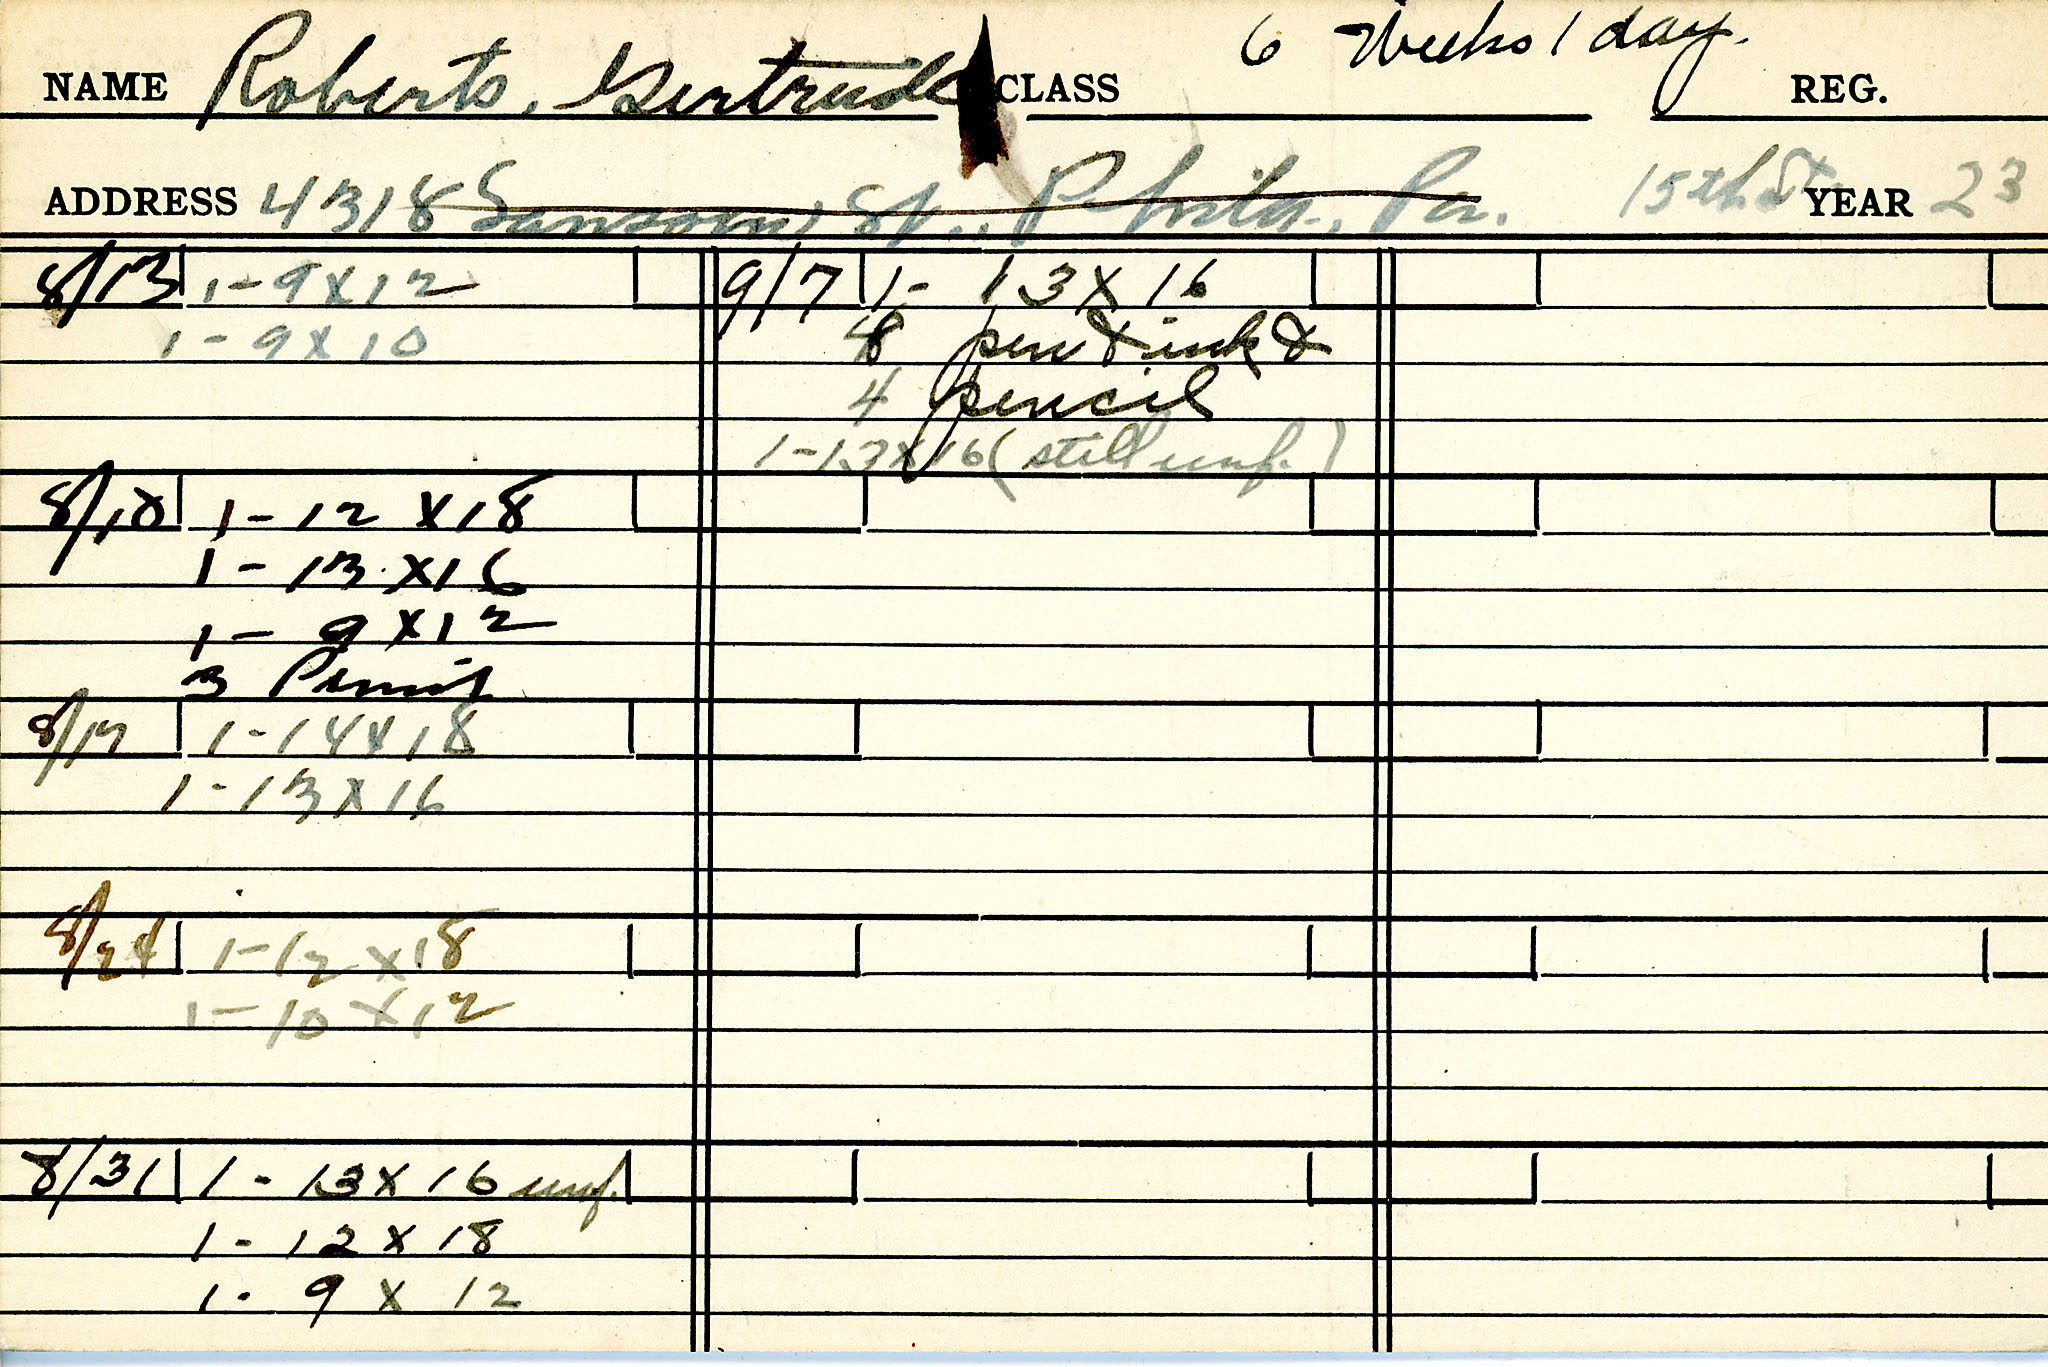 NAME Roberts, Gertrude CLASS 6 Weeks 1 day. REG.
ADDRESS 4318 Sansom, St., Phila., Pa. 15th YEAR 23
8/13 1-9x12
1-9x10
8/10 1-12 x18
1-13 x16
1-9x12
3
8/17 1-14x18
1-13x16
8/24 1-12x18
1-10x12
8/31 1-13x16 unf.
1-12x18
1-9x12
9/7 1-13x16
8 pen & ink &
4 pencil
1-13x16 (still unf.)